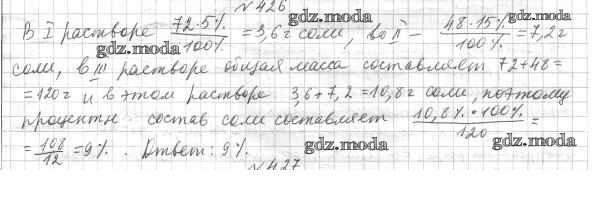 №426
gdz.moda
gdz.moda
В I растворе 72·5%/100% = 3,6 г соли, во II – 48·15%/100% = 7,2 г
gdz.moda
соли, в III растворе общая масса составляет 72+48=
=120 г и в этом растворе 3,6+7,2=10,8 г соли, поэтому
процентн. состав соли составляет 10,8%·100%/120 =
= 108/12 = 9%. Ответ: 9%.
gdz.moda
gdz.moda
№427